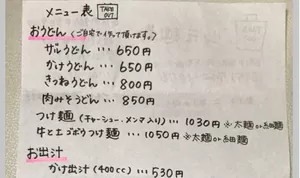 メニュー表 TAKE OUT
おうどん(ご自宅でイクッて頂けます。)
ザルうどん … 650円
かけうどん … 650円
きつねうどん … 800円
肉みそうどん … 850円
つけ麺(チャーシュー、メンマ入り) … 1030円 ※太麺or細麺
牛と土ゴボウつけ麺 … 1050円 ※太麺or細麺
お出汁
かけ出汁(400cc) … 530円